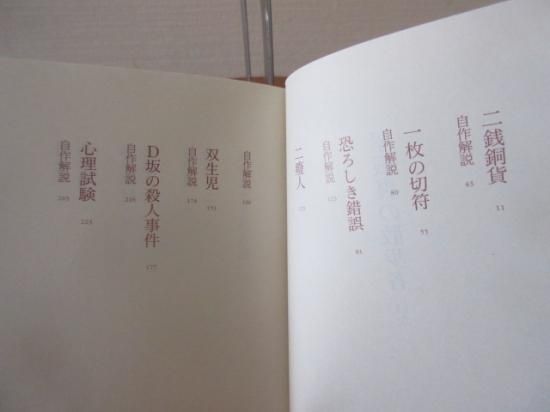 二銭銅貨 11
自作解説 45
一枚の切符 55
自作解説 80
恐ろしき錯誤 81
自作解説 123
二癈人 125
自作解説
双生児 151
自作解説 174
D坂の殺人事件 177
自作解説
心理試験
自作解説